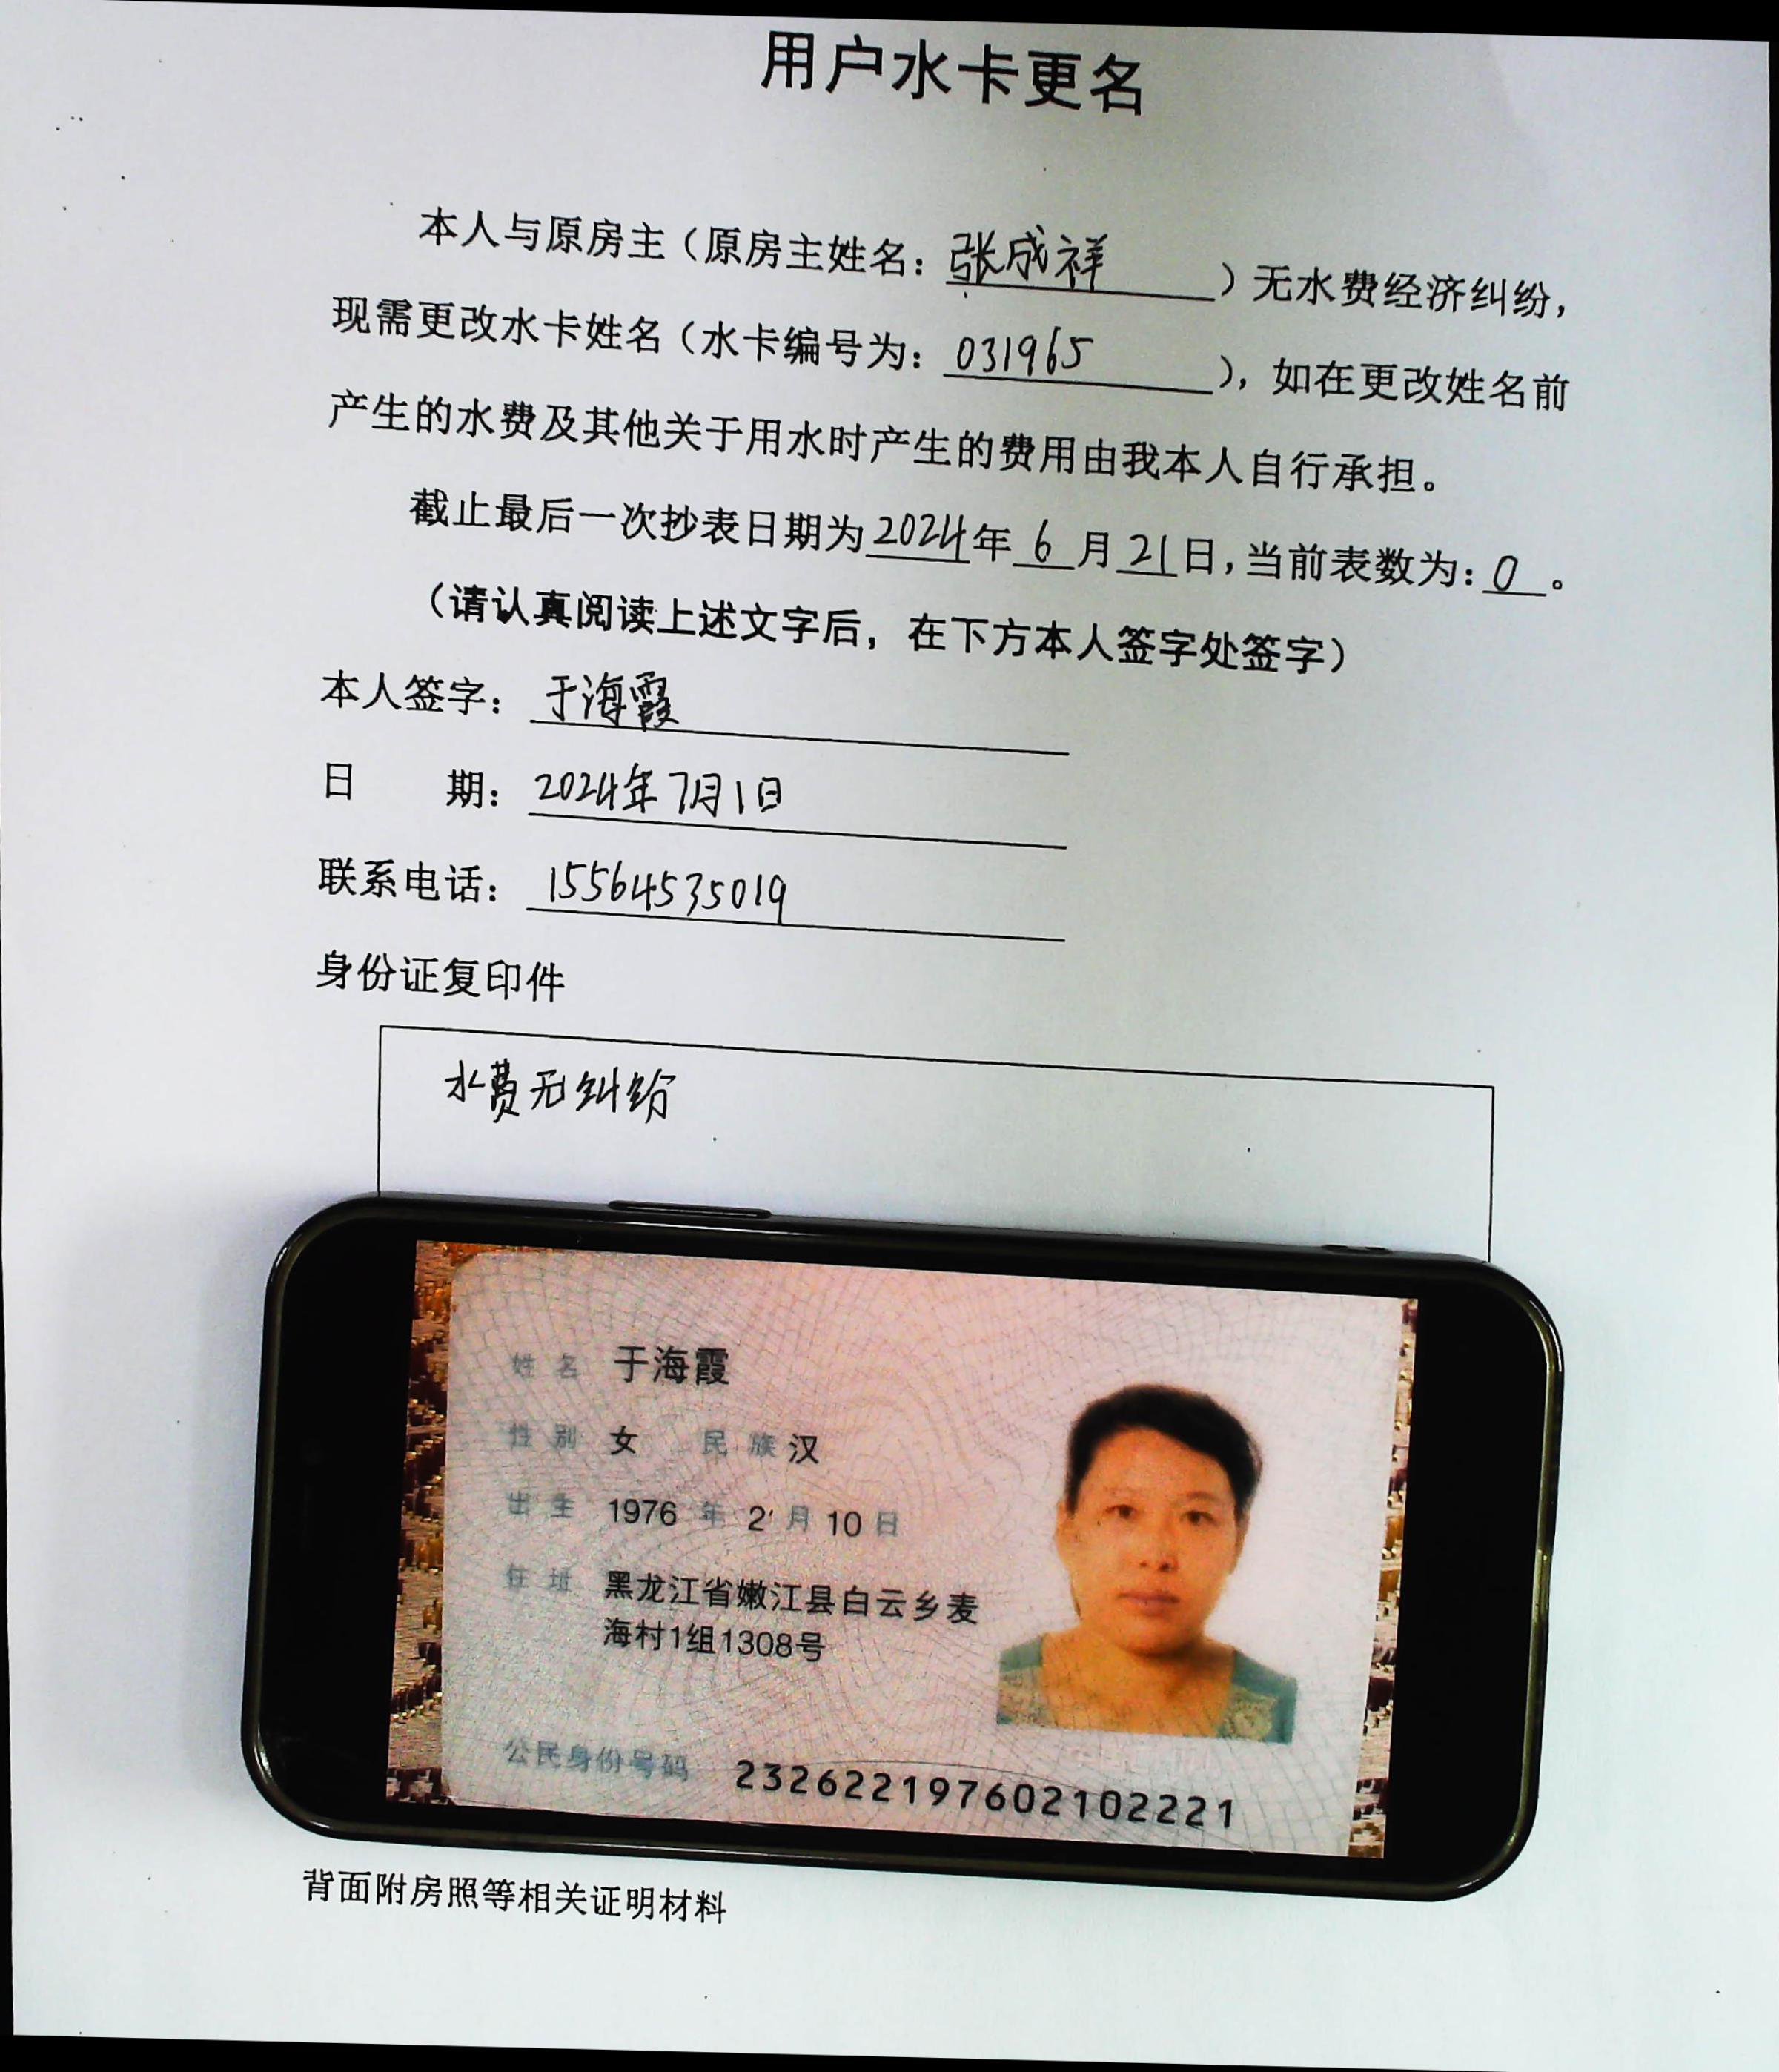 用户水卡更名
本人与原房主（原房主姓名：张成祥）无水费经济纠纷，
现需更改水卡姓名（水卡编号为：031965），如在更改姓名前
产生的水费及其他关于用水时产生的费用由我本人自行承担。
截止最后一次抄表日期为2024年6月21日，当前表数为：0。
（请认真阅读上述文字后，在下方本人签字处签字）
本人签字：于海霞
日期：2024年7月1日
联系电话：15564535019
身份证复印件
水费无纠纷
姓名 于海霞
性别 女 民族 汉
出生 1976 年 2 月 10 日
住址 黑龙江省嫩江县白云乡麦
海村1组1308号
公民身份号码 232622197602102221
背面附房照等相关证明材料